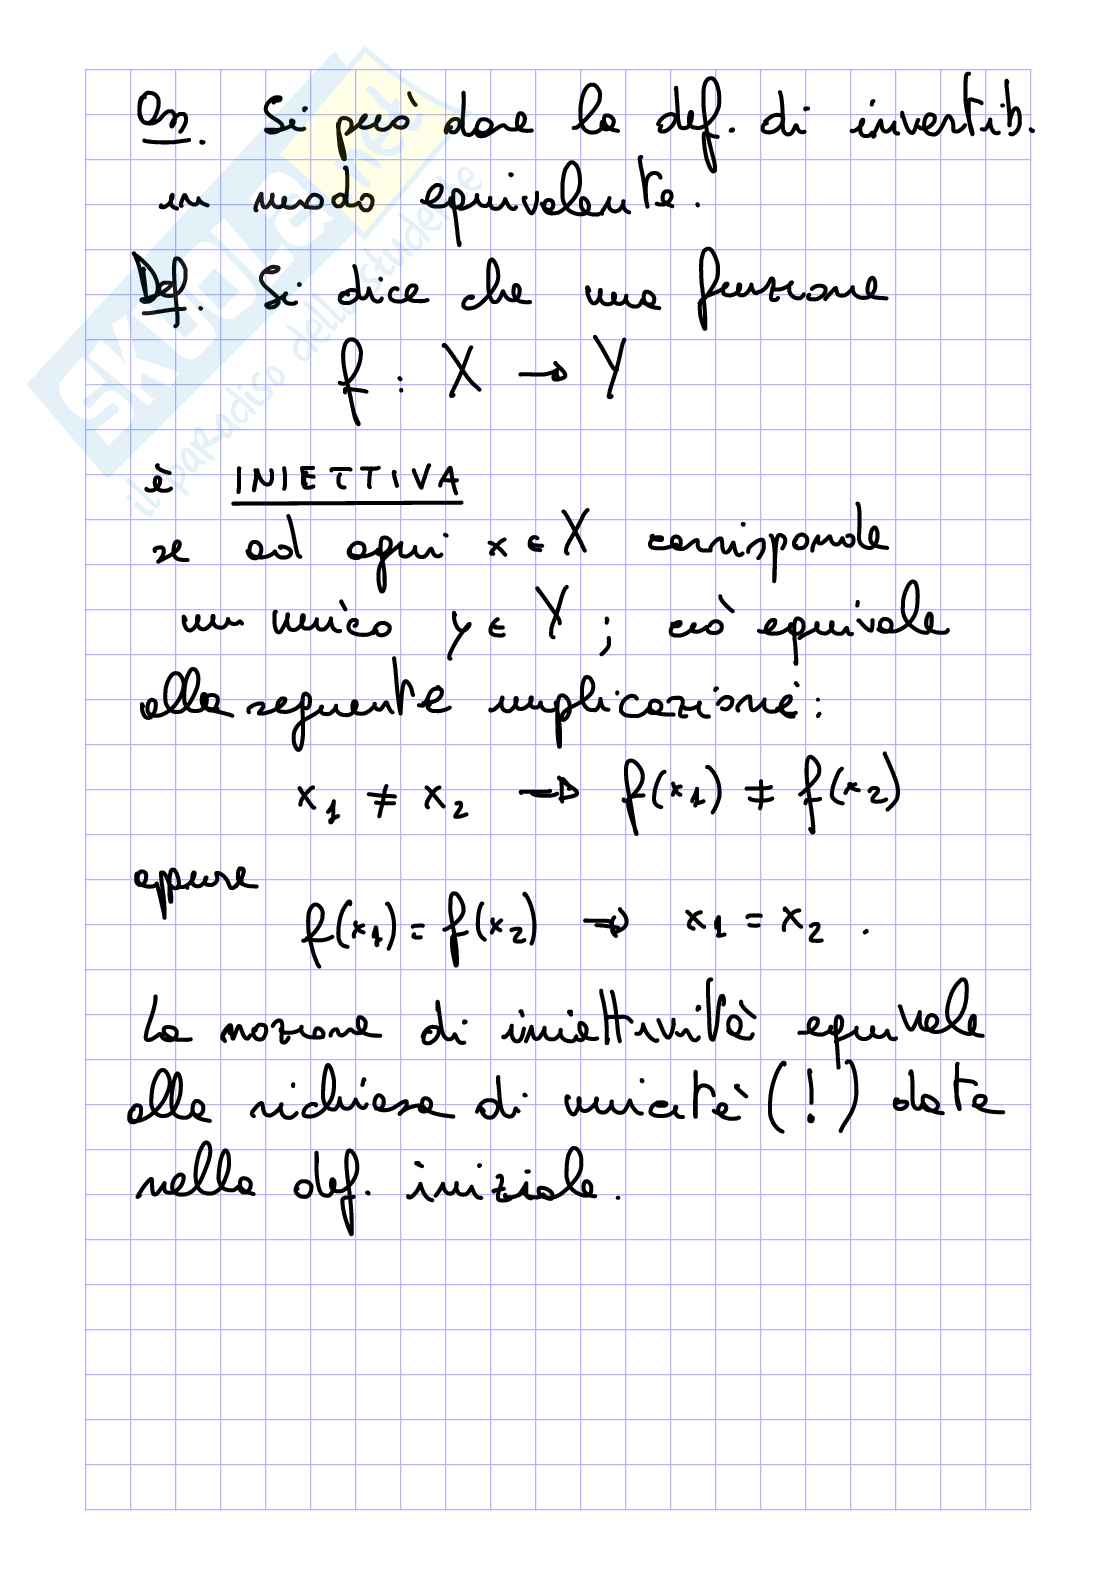 Oss. Si può dare la def. di invertib.
in modo equivalente.
Def. Si dice che una funzione
f : X → Y
è INIETTIVA
se ad ogni x ∈ X corrisponde
un unico y ∈ Y ; ciò equivale
alla seguente implicazione:
x₁ ≠ x₂ → f(x₁) ≠ f(x₂)
oppure
f(x₁) = f(x₂) → x₁ = x₂ .
La nozione di iniettività equivale
alla richiesa di unicità (!) data
nella def. iniziale.
SKUOLA.net
il paradiso dello studente